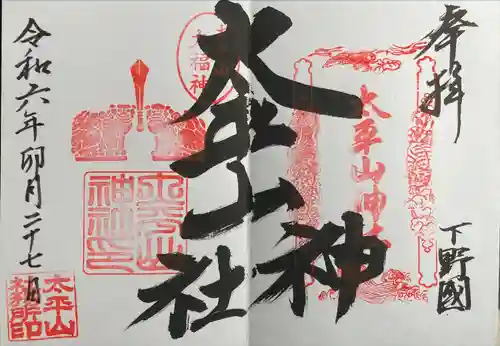 奉拝
下野國
太平山神社
太平山神社
大福神
太平山神社印
令和六年卯月二十七日
太平山
社務所印